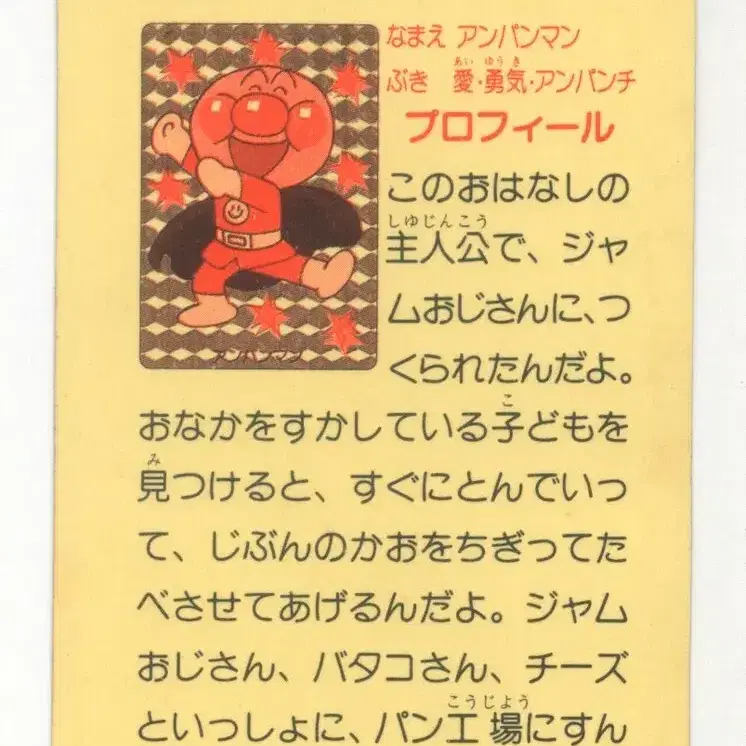 なまえ アンパンマン
ぶき 愛・勇気・アンパンチ
プロフィール
このおはなしの
主人公で、ジャ
ムおじさんに、つ
くられたんだよ。
おなかをすかしている子どもを
見つけると、すぐにとんでいっ
て、じぶんのかおをちぎってた
べさせてあげるんだよ。ジャム
おじさん、バタコさん、チーズ
といっしょに、パン工場にすん
アンパンマン